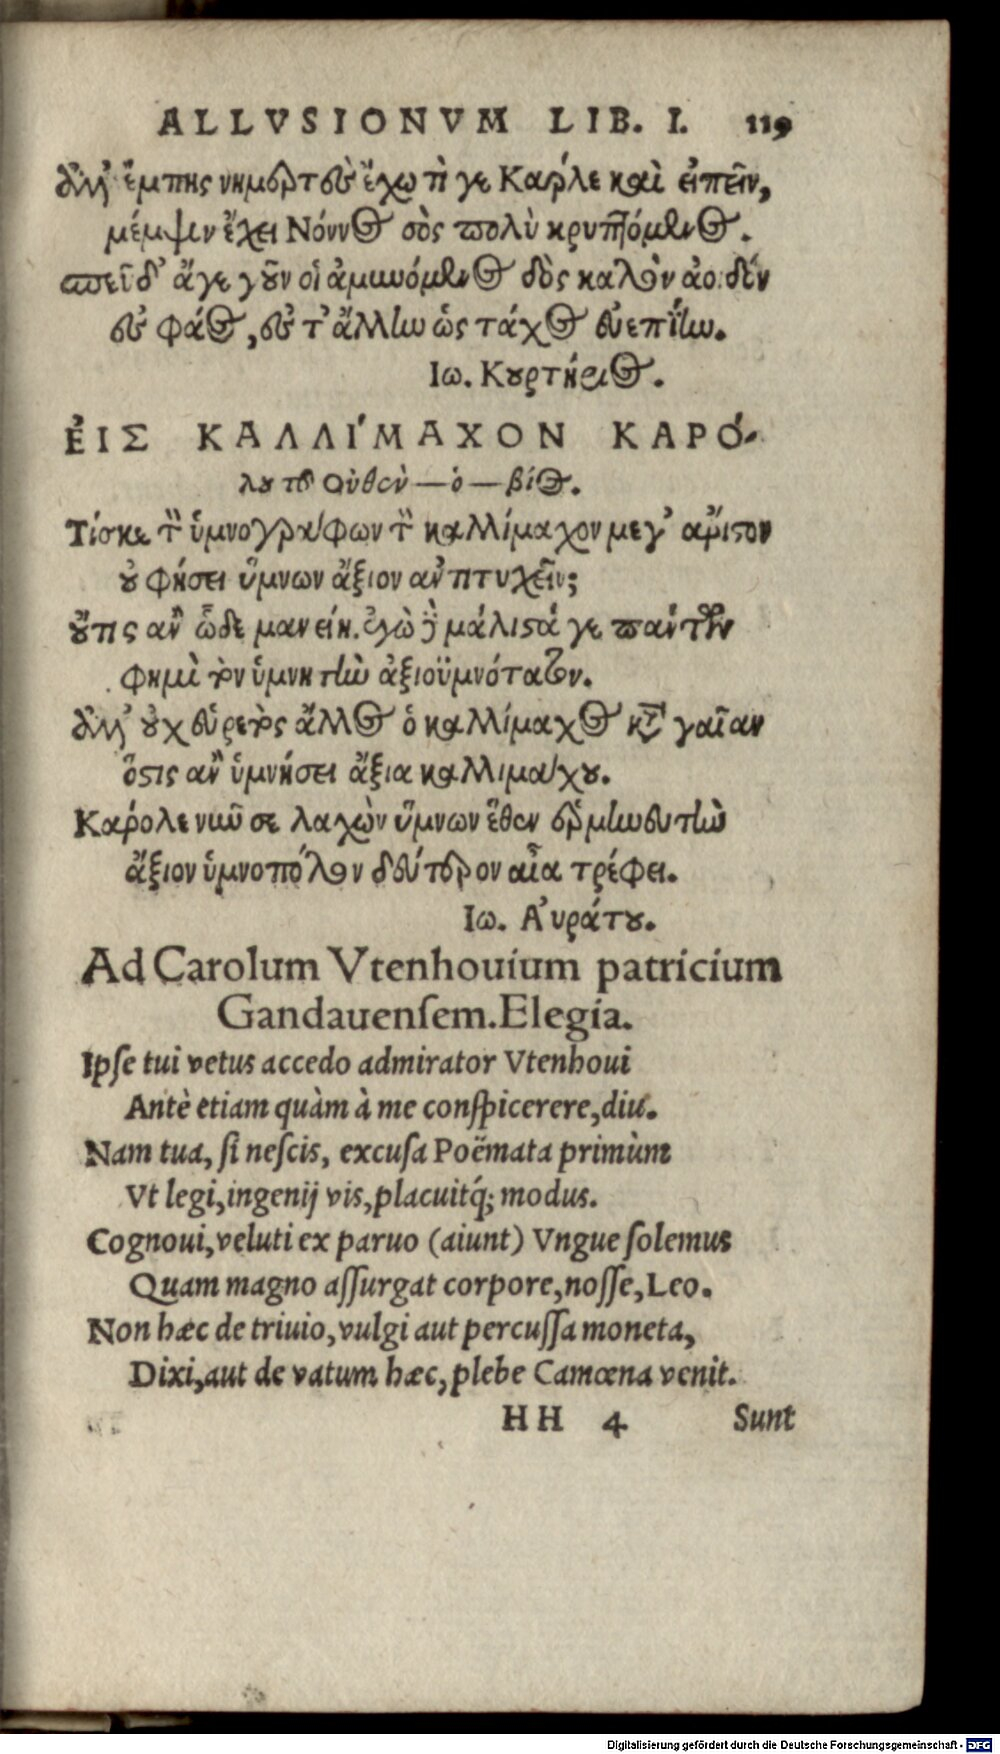 ALLVSIONVM LIB. I. 119
ἔμπης ἔχω τὶ γε Καρ́λε καὶ εἰπεῖν,
μέμψιν ἔχει Νόννος σὸς πολὺ κρυπτόμενος.
ἄγε γοῦν οἱ ἀμυνόμενος δὸς καλὸν
φάος, ὡς τάχος
Ιω. Κουρτήριος.
ἘΙΣ ΚΑΛΛΙ´ΜΑΧΟΝ ΚΑΡΟ´-
λου τοῦ Οὐθεν—ό—βίος.
Τίσκε τ ὑμνογράφων τ καλλίμαχον μεγ' ἄριστον
οὐ φήσει ὕμνων ἄξιον ἀντιτυχεῖν;
οὔτις ἂν ὧδε μανείη. ἐγὼ δὲ μάλιστά γε πάντων
φημὶ τὸν ὑμνητὴν ἀξιοϋμνότατον.
ἀλλ' οὐχ εὑρετὸς ἄλλος ὁ καλλίμαχος κατὰ γαῖαν
ὅστις ἂν ὑμνήσει ἄξια καλλιμάχου.
Καρόλε νῦν σε λαχὼν ὕμνων ἕθεν
ἄξιον ὑμνοπόλον δεύτερον αἶα τρέφει.
Ιω. Α᾽υράτου.
Ad Carolum Vtenhouium patricium
Gandauenſem. Elegia.
Ipſe tui vetus accedo admirator Vtenhoui
Antè etiam quàm à me conſpicerere, diu.
Nam tua, ſi neſcis, excuſa Poëmata primùm
Vt legi, ingenij vis, placuitq́; modus.
Cognoui, veluti ex paruo (aiunt) Vngue ſolemus
Quam magno aſſurgat corpore, noſſe, Leo.
Non hæc de triuio, vulgi aut percuſſa moneta,
Dixi, aut de vatum hæc, plebe Camœna venit.
HH 4 Sunt
Digitalisierung gefördert durch die Deutsche Forschungsgemeinschaft - DFG